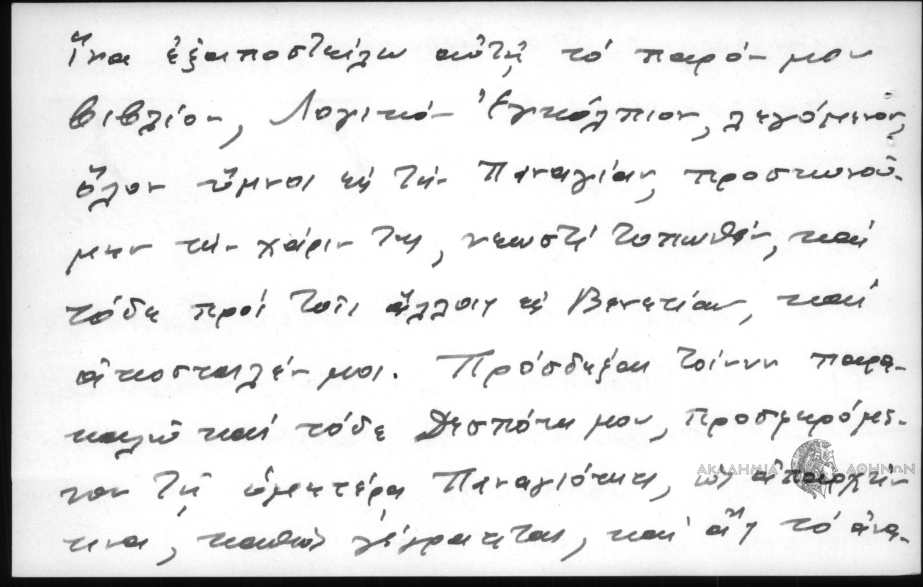 ἵνα ἐξαποστείλω αὐτῇ τό παρόν μου
βιβλίον, Λογικόν Ἐγκόλπιον, λεγόμενον,
ὅλον ὕμνοι εἰς τήν Παναγίαν, προσκυνοῦ-
μεν τήν χάριν της, νεωστί τυπωθέν, καί
τόδε πρός τοῖς ἄλλοις εἰς Βενετίαν, καί
ἀποσταλέν μοι. Πρόσδεξαι τοίνυν παρα-
καλῶ καί τόδε Δεσπότα μου, προσφερόμε-
νον τῇ ὑμετέρᾳ Παναγιότητι, ὡς ἀπαρχήν
τινα, καθώς γέγραπται, καί ἄς τό ἀνα-
ΑΚΑΔΗΜΙΑ ΑΘΗΝΩΝ